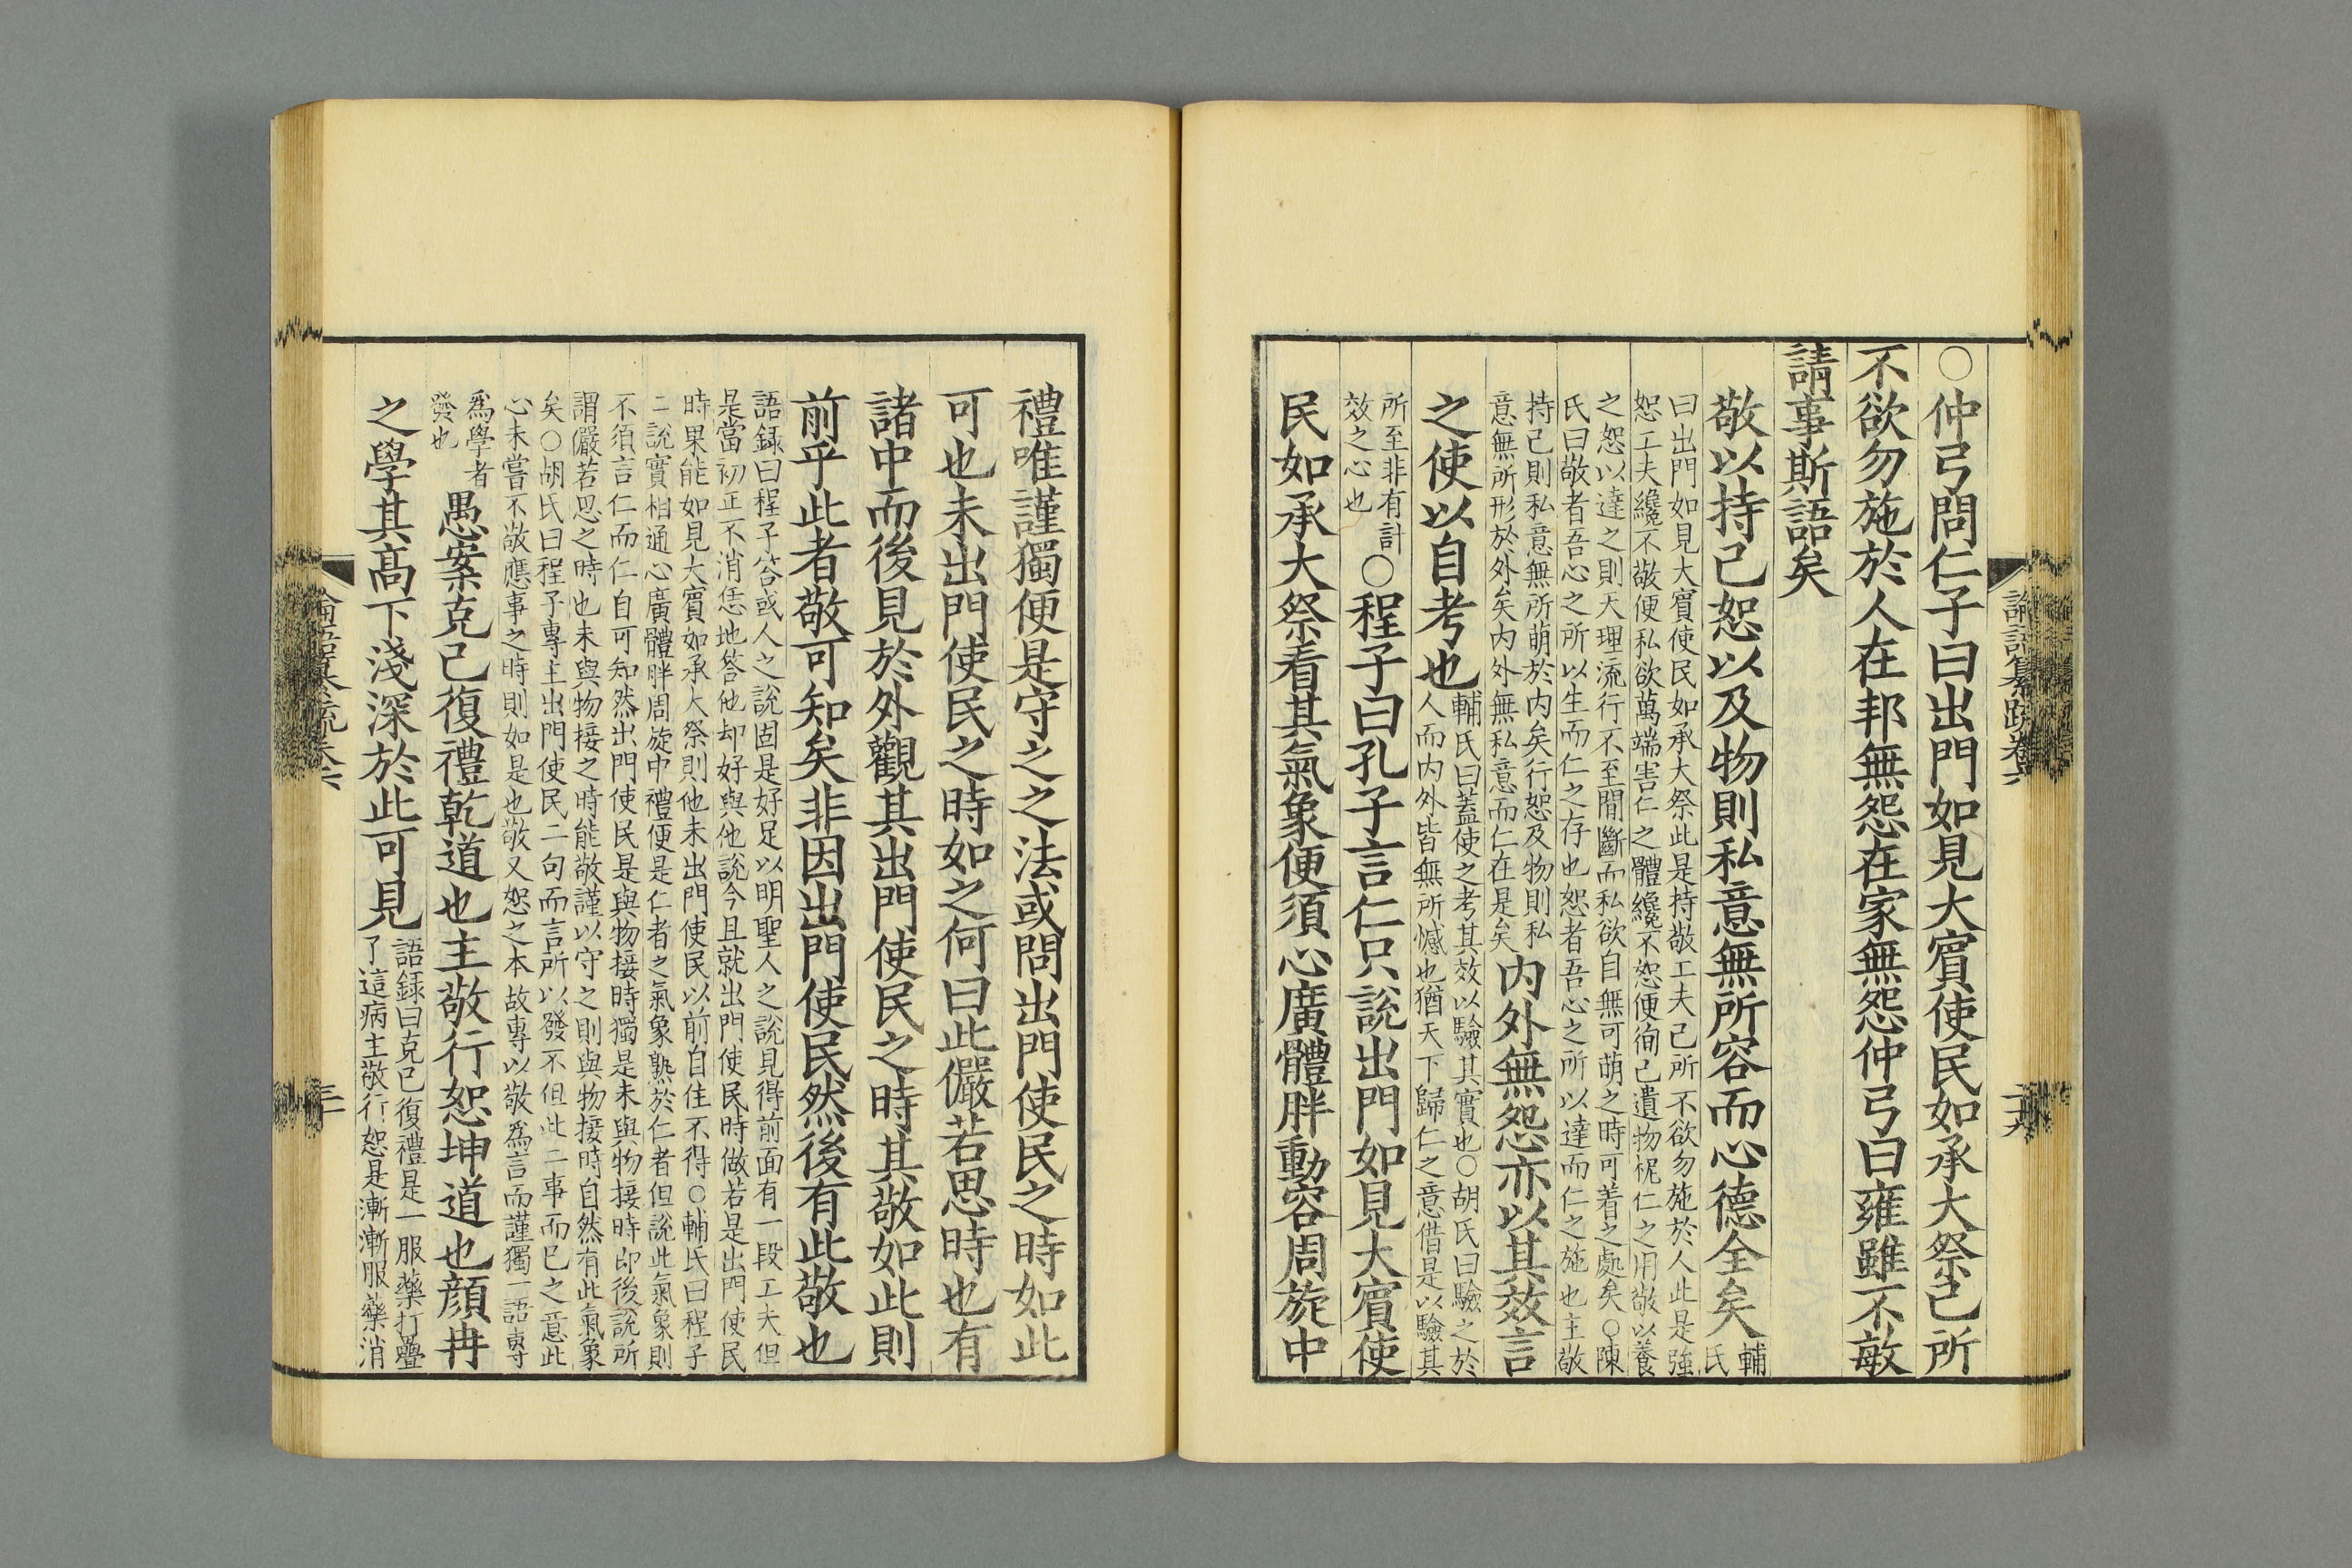 ○仲弓問仁子曰出門如見大賓使民如承大祭己所
不欲勿施於人在邦無怨在家無怨仲弓曰雍雖不敏
請事斯語矣
敬以持己恕以及物則私意無所容而心德全矣輔
氏
曰出門如見大賓使民如承大祭此是持敬工夫己所不欲勿施於人此是強
恕工夫纔不敬便私欲萬端害仁之體纔不恕便徇己遺物梏仁之用敬以養
之恕以達之則天理流行不至間斷而私欲自無可萌之時可着之處矣○陳
氏曰敬者吾心之所以生而仁之存也恕者吾心之所以達而仁之施也主敬
持己則私意無所萌於内矣行恕及物則私
意無所形於外矣内外無私意而仁在是矣
内外無怨亦以其效言
之使以自考也
輔氏曰蓋使之考其效以驗其實也○胡氏曰驗之於
人而内外皆無所憾也猶天下歸仁之意借是以驗其
所至非有計
效之心也
○程子曰孔子言仁只說出門如見大賓使
民如承大祭看其氣象便須心廣體胖動容周旋中
禮唯謹獨便是守之之法或問出門使民之時如此
可也未出門使民之時如之何曰此儼若思時也有
諸中而後見於外觀其出門使民之時其敬如此則
前乎此者敬可知矣非因出門使民然後有此敬也
語録曰程子答或人之說固是好足以明聖人之說見得前面有一段工夫但
是當初正不消恁地答他却好與他說今且就出門使民時做若是出門使民
時果能如見大賓如承大祭則他未出門使民以前自住不得○輔氏曰程子
二說實相通心廣體胖周旋中禮便是仁者之氣象熟於仁者但說此氣象則
不須言仁而仁自可知然出門使民是與物接時獨是未與物接時即後說所
謂儼若思之時也未與物接之時能敬謹以守之則與物接時自然有此氣象
矣○胡氏曰程子專主出門使民二句而言所以發不但此二事而已之意此
心未嘗不敬應事之時則如是也敬又恕之本故專以敬爲言而謹獨一語專
爲學者
發也
愚案克己復禮乾道也主敬行恕坤道也顔冉
之學其高下淺深於此可見
語録曰克己復禮是一服藥打疊
了這病主敬行恕是漸漸服藥消